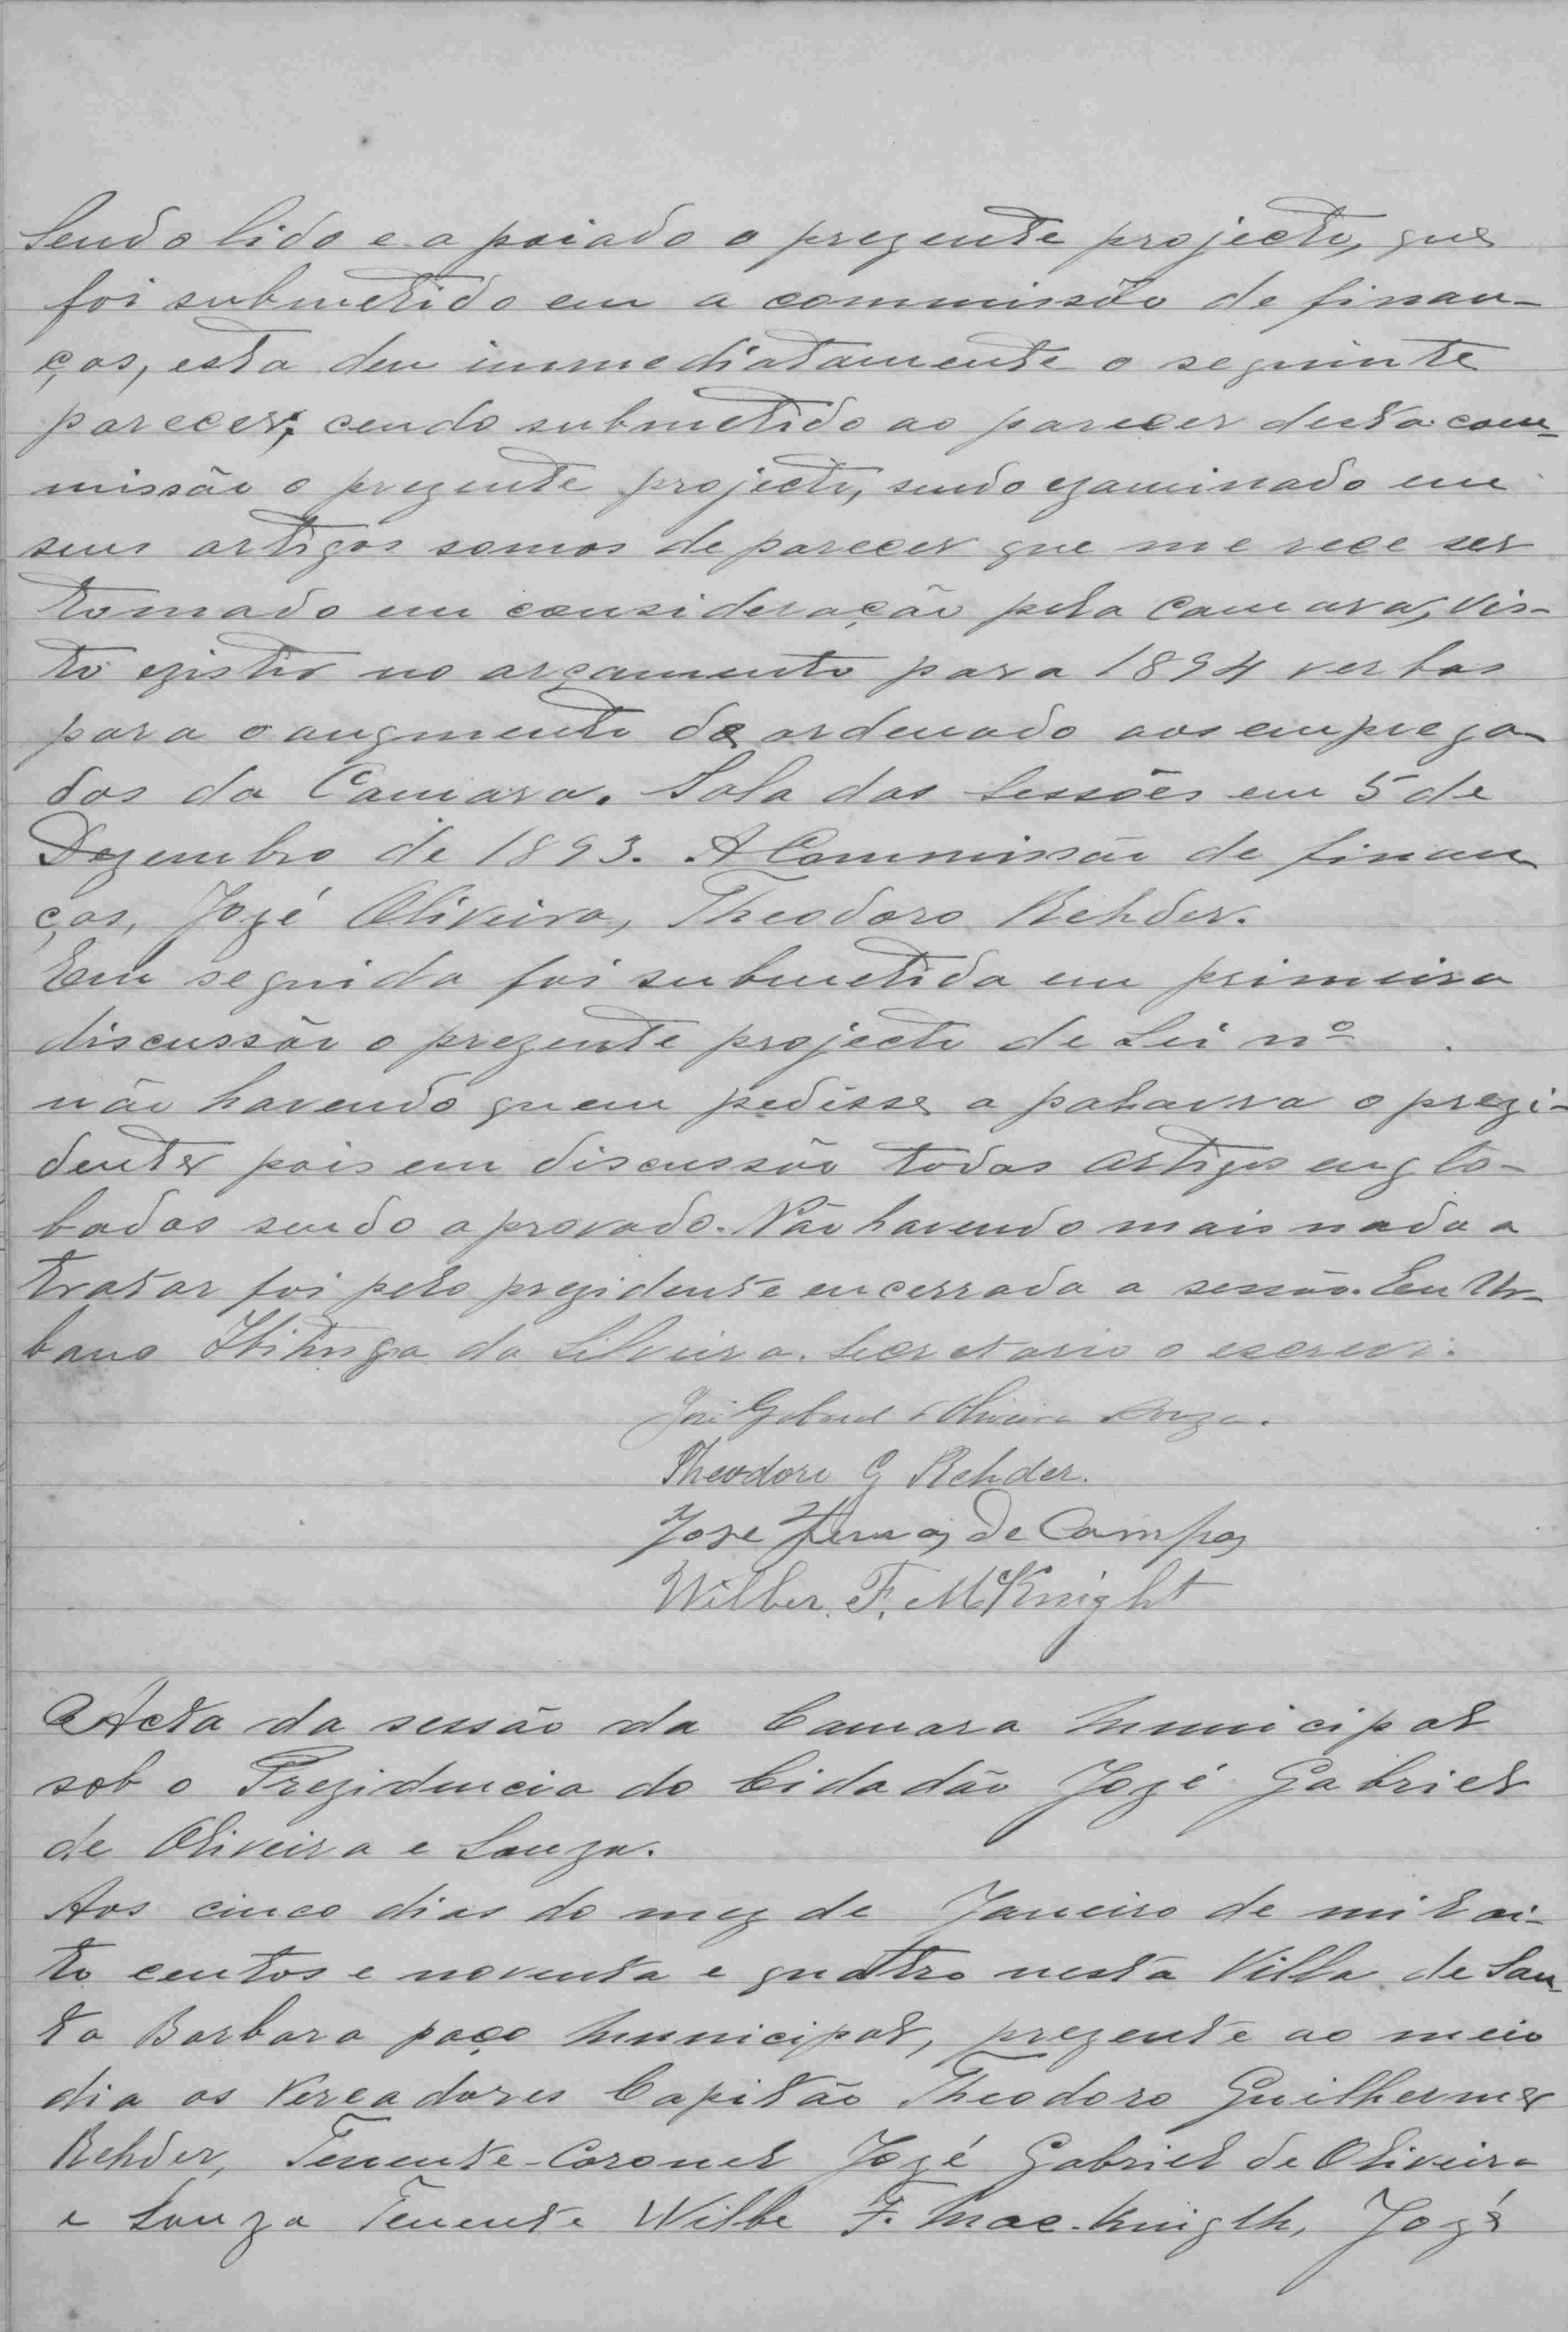 Sendo lido e apoiado o prezente projecto, que
foi submetido em a commissão de finan-
ças, esta deu immediatamente o seguinte
parecer; cendo submetido ao parecer desta com-
missão o prezente projecto, sendo ezaminado em
seus artigos somos de parecer que merece ser
tomado em consideração pela Camara, vis-
to ezistir no orçamento para 1894 verbas
para o augmento de ordenado aos emprega-
dos da Camara. Sala das Sessões em 5 de
Dezembro de 1893. A Commissão de finan
ças, Jozé Oliveira, Theodoro Rehder.
Em seguida foi submetida em primeira
discussão o prezente projecto de Lei nº .
não havendo quem pedisse a palavra o prezi-
dente pois em discussão todos artigos englo-
bados sendo aprovado. Não havendo mais nada a
tratar foi pelo prezidente encerrada a sessão. Eu Ur-
bano Ibitinga da Silveira. Secretario o escrevi.
José Gabriel Oliveira Souza.
Theodoro G Rehder.
Jose de Campos
Wilber. F. McKnight
Acta da sessão da Camara Municipal
sob o Prezidencia do Cidadão Jozé Gabriel
de Oliveira e Souza.
Aos cinco dias do mez de Janeiro de mil oi-
to centos e noventa e quatro nesta Villa de San-
ta Barbara paço Municipal, prezente ao meio
dia os Vereadores Capitão Theodoro Guilherme
Rehder, Tenente-Coronel Jozé Gabriel de Oliveira
e Souza Tenente Wilbe F. Mac-Knigth, Jozé